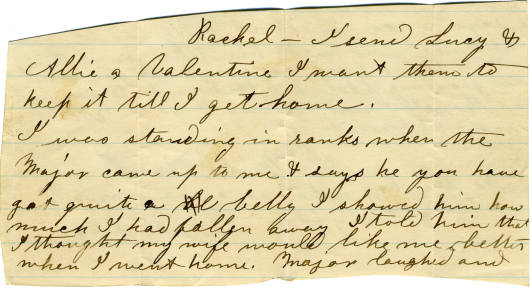 Rachel - I send Lucy &
Allie a Valentine I want them to
keep it till I get home.
I was standing in ranks when the
Major came up to me & says he you have
got quite a belly I showed him how
much I had fallen away I told him that
I thought my wife would like me better
when I went home. Major laughed and